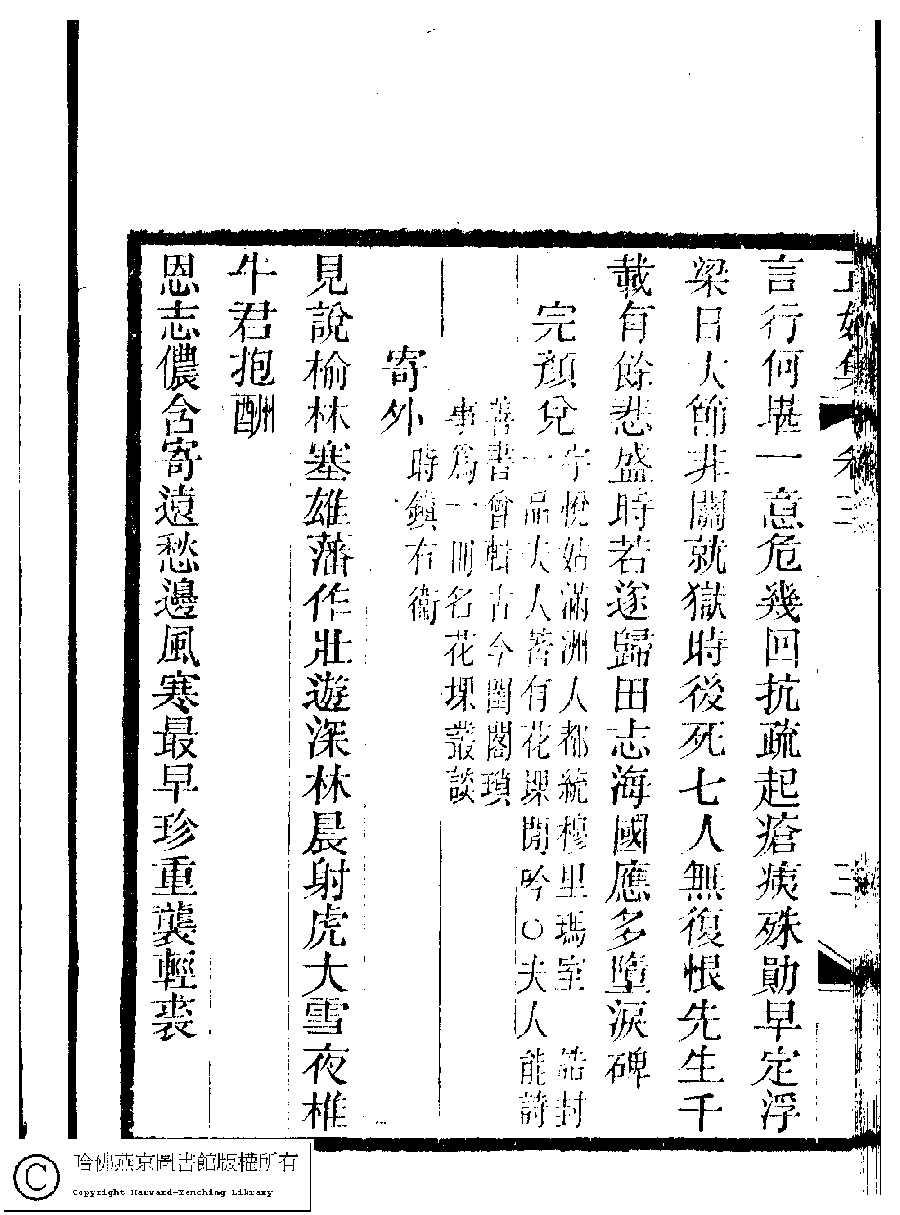 言行何堪一意危幾回抗疏起瘡痍殊勛早定浮
梁日大節非關就獄時後死七人無復恨先生千
載有餘悲盛時若遂歸田志海國應多墮淚碑
完顏兌
字悅姑滿洲人都統穆里瑪室 誥封
一品夫人著有花堁閒吟○夫人能詩
善書曾輯古今閨閣瑣
事爲一冊名花堁叢談
寄外
時鎮右衞
見說榆林塞雄藩作壯遊深林晨射虎大雪夜椎
牛君抱酬
恩志儂含寄遠愁邊風寒最早珍重襲輕裘
哈佛燕京圖書館版權所有
Copyright Harvard-Yenching Library